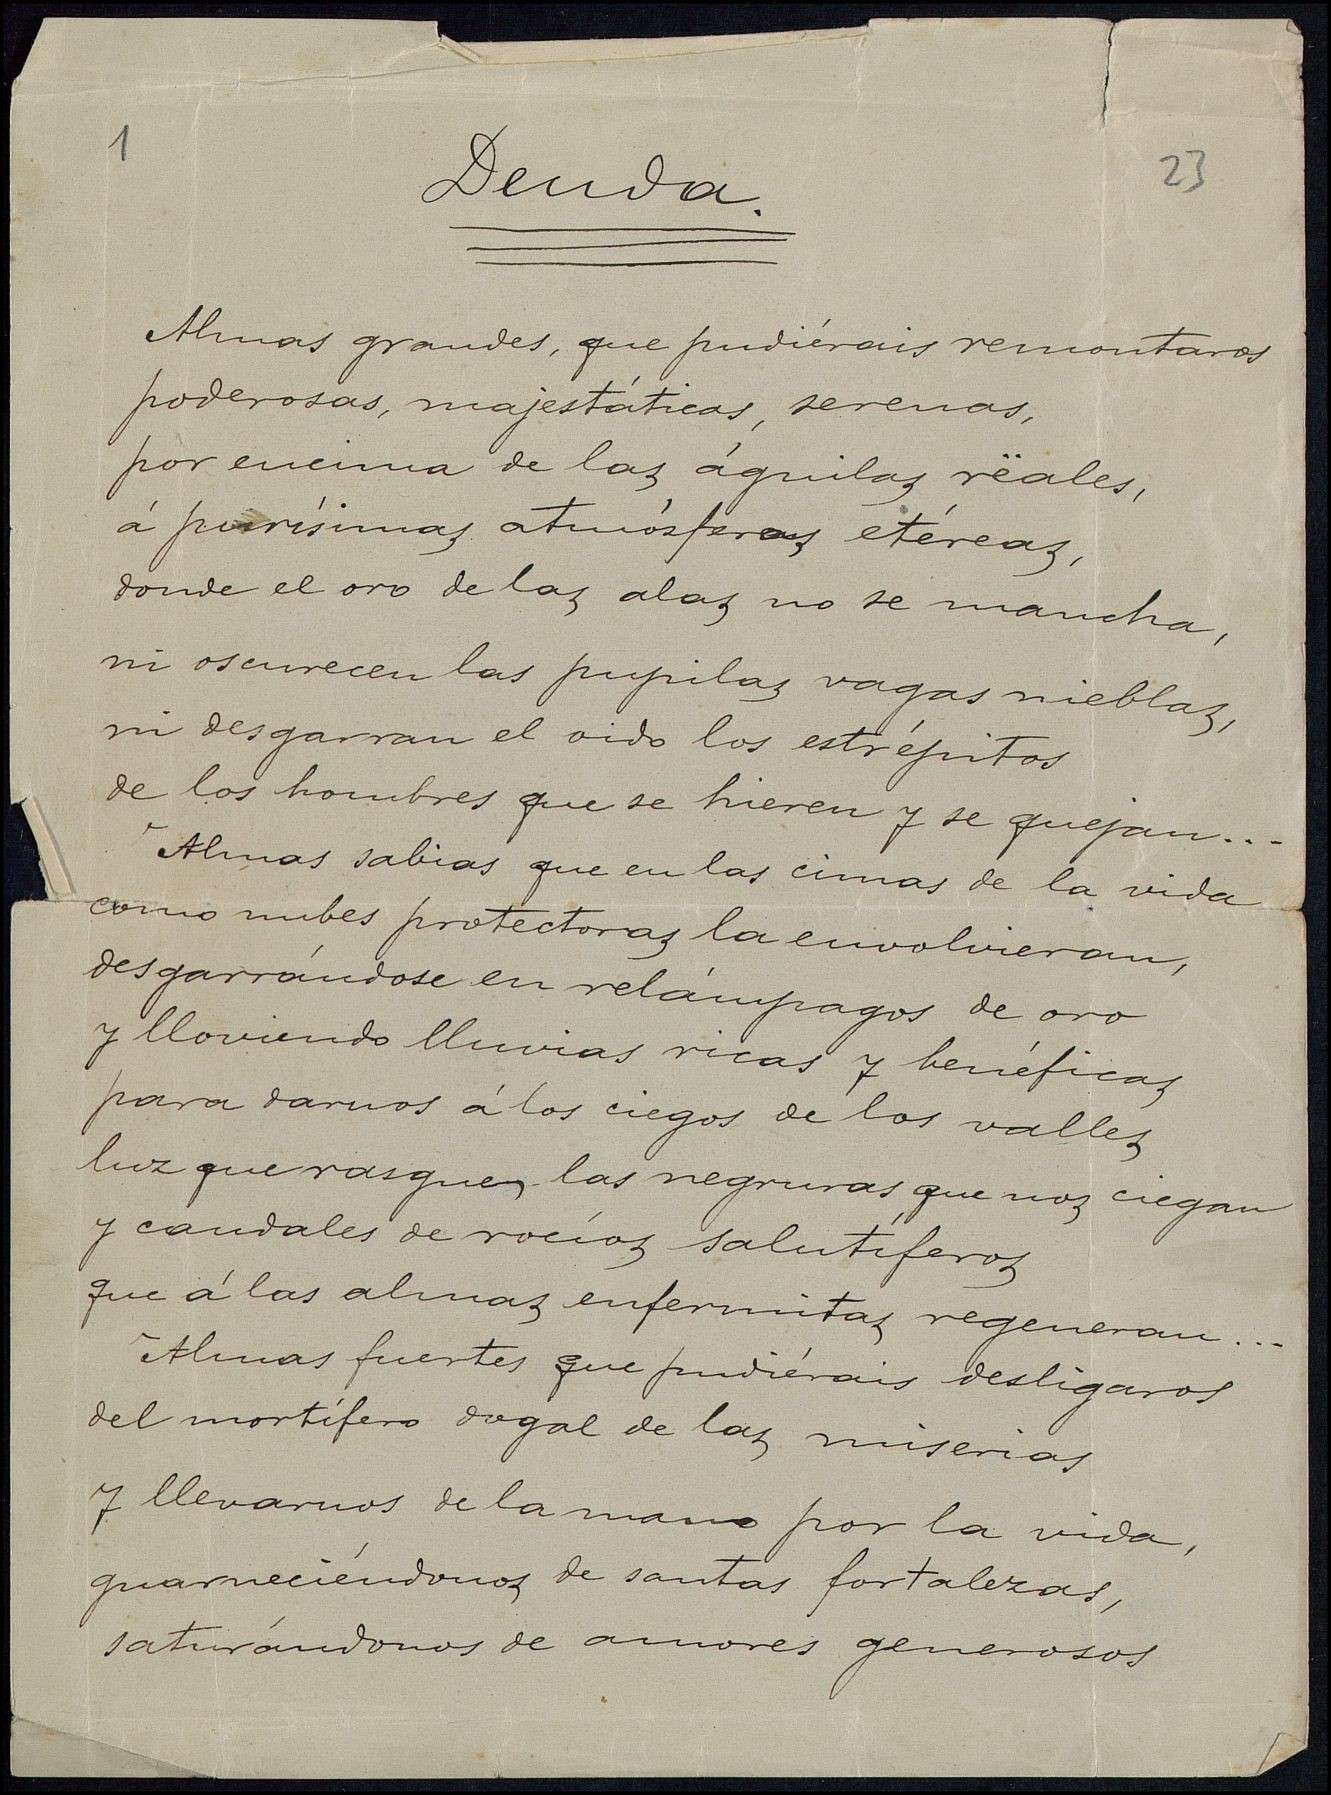 1
23
Deuda.
Almas grandes, que pudiérais remontaros
poderosas, majestáticas, serenas,
por encima de las águilas rëales,
á purísimas atmósferas etéreas,
donde el oro de las alas no se mancha,
ni oscurecen las pupilas vagas nieblas,
ni desgarran el oido los estrépitos
de los hombres que se hieren y se quejan...
Almas sabias que en las cimas de la vida
como nubes protectoras la envolvieran,
desgarrándose en relámpagos de oro
y lloviendo lluvias ricas y benéficas
para darnos á los ciegos de los valles
luz que rasgue las negruras que nos ciegan
y caudales de rocíos salutíferos
que á las almas enfermitas regeneran...
Almas fuertes que pudiérais desligaros
del mortífero dogal de las miserias
y llevarnos de la mano por la vida,
guarneciéndonos de santas fortalezas,
saturándonos de amores generosos